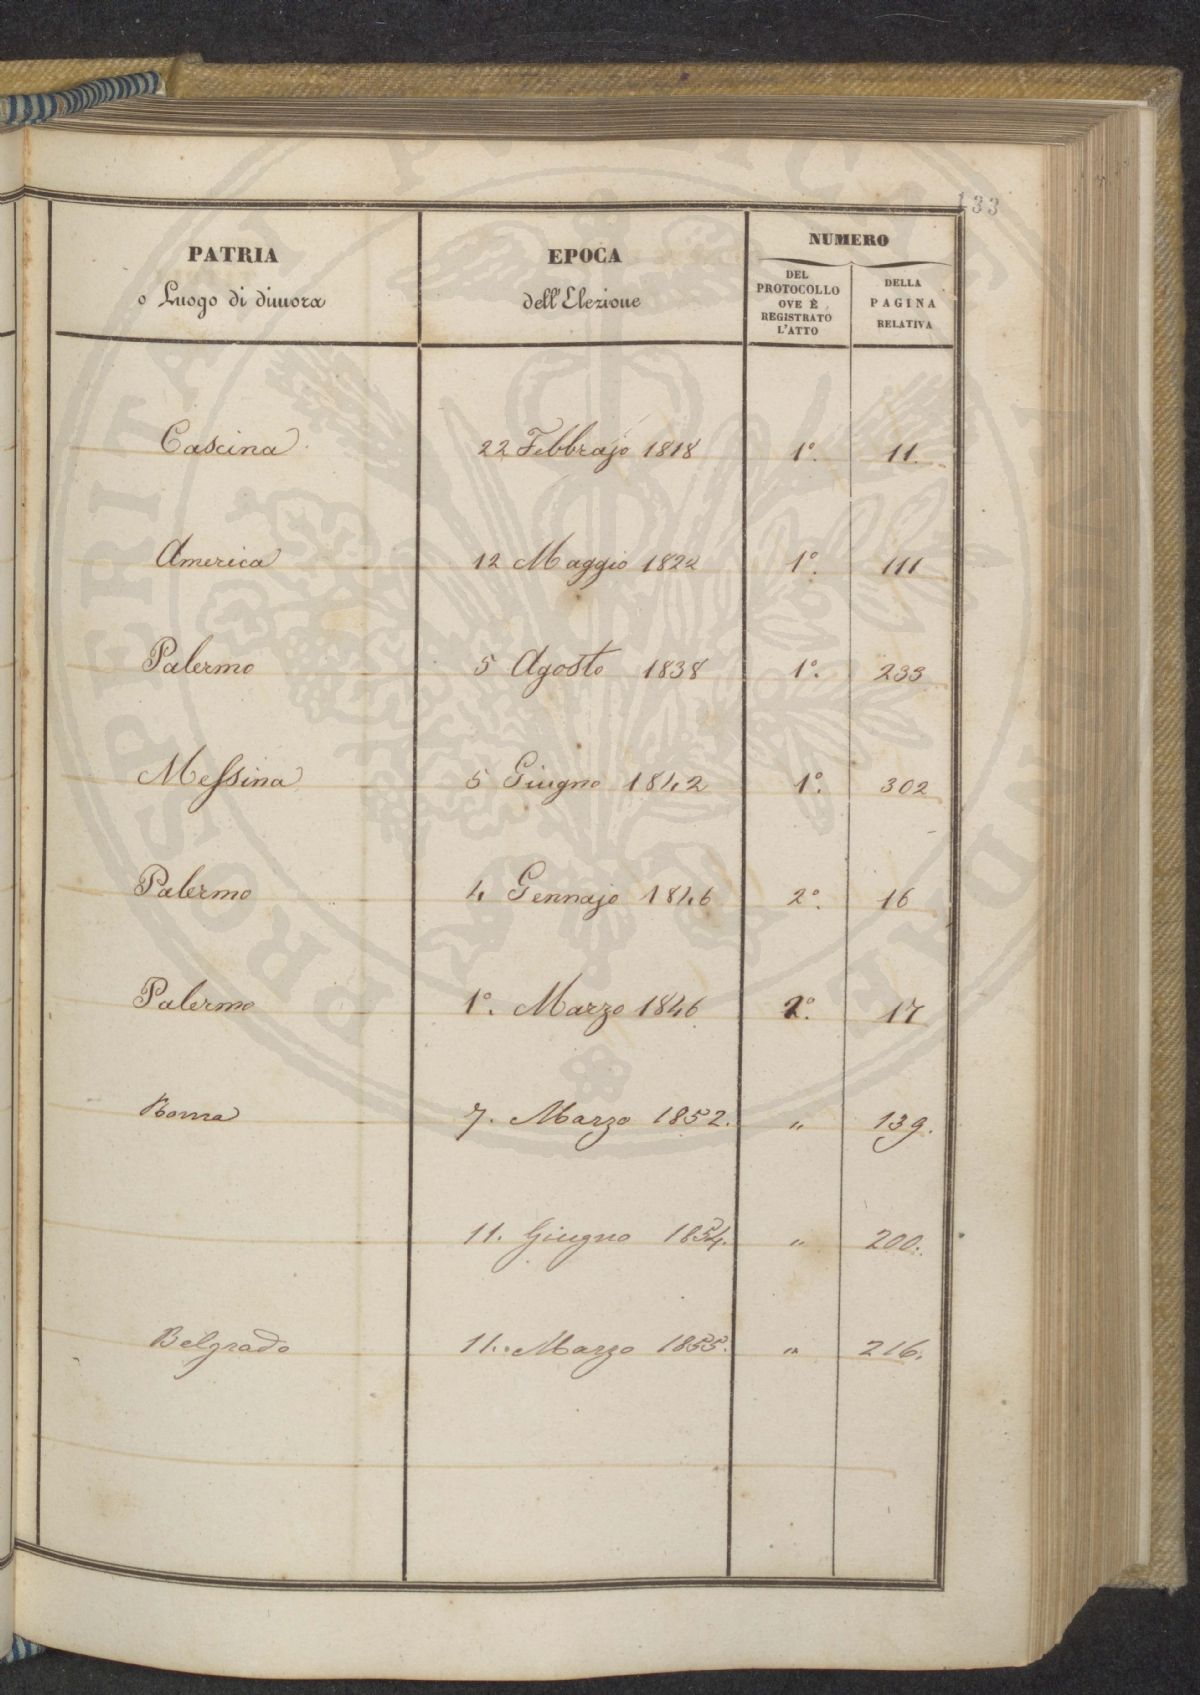 133
PATRIA
o Luogo di dimora
EPOCA
dell'Elezione
NUMERO
DEL
PROTOCOLLO
OVE È
REGISTRATO
L'ATTO
DELLA
PAGINA
RELATIVA
Cascina 22 Febbrajo 1818 1°. 11.
America 12 Maggio 1822 1°. 111
Palermo 5 Agosto 1838 1°. 233
Messina 5 Giugno 1842 1°. 302
Palermo 4 Gennajo 1846 2°. 16
Palermo 1°. Marzo 1846 2°. 17
Roma 7. Marzo 1852. " 139.
11. Giugno 1854. " 200.
Belgrado 11. Marzo 1855. " 216.